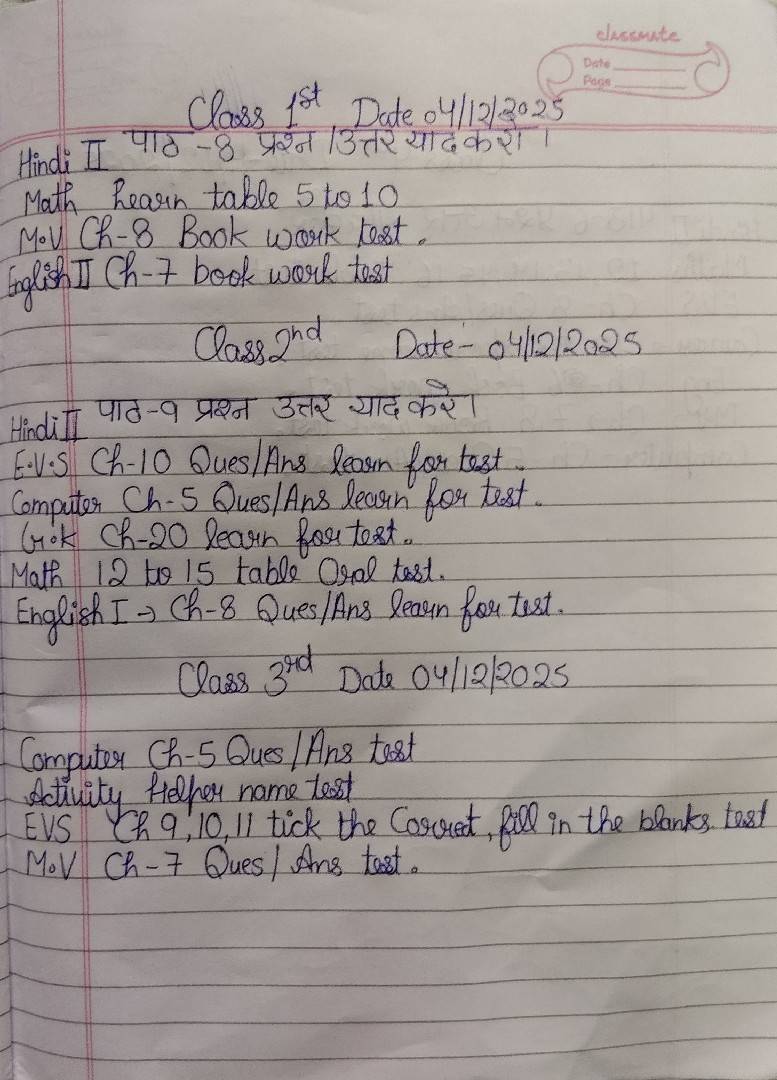 classmate
Date
Page
Class 1st Date 04/12/2025
Hindi II पाठ -8 प्रश्न /उत्तर याद करो ।
Math Learn table 5 to 10
M.V Ch-8 Book work test.
English II Ch-7 book work test
Class 2nd Date - 04/12/2025
Hindi II पाठ-9 प्रश्न उत्तर याद करे।
E.V.S Ch-10 Ques/Ans learn for test.
Computer Ch-5 Ques/Ans learn for test.
G.K Ch-20 learn for test.
Math 12 to 15 table Oral test.
English I → Ch-8 Ques/Ans learn for test.
Class 3rd Date 04/12/2025
Computer Ch-5 Ques/Ans test
Activity Helper name test
EVS Ch 9,10,11 tick the Correct, fill in the blanks. test
M.V Ch-7 Ques/Ans test.